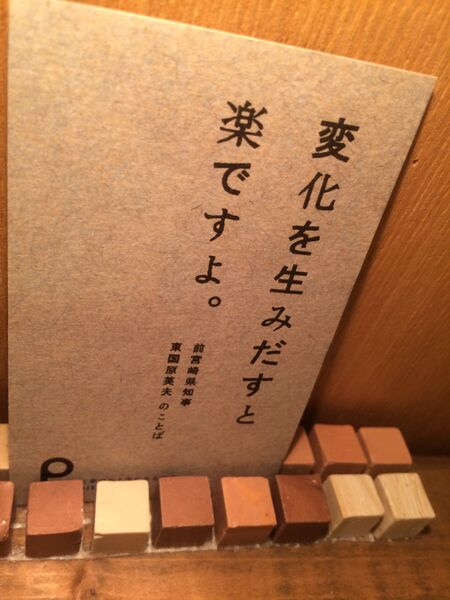 変化を生みだすと
楽ですよ。
前宮崎県知事
東国原英夫 のことば